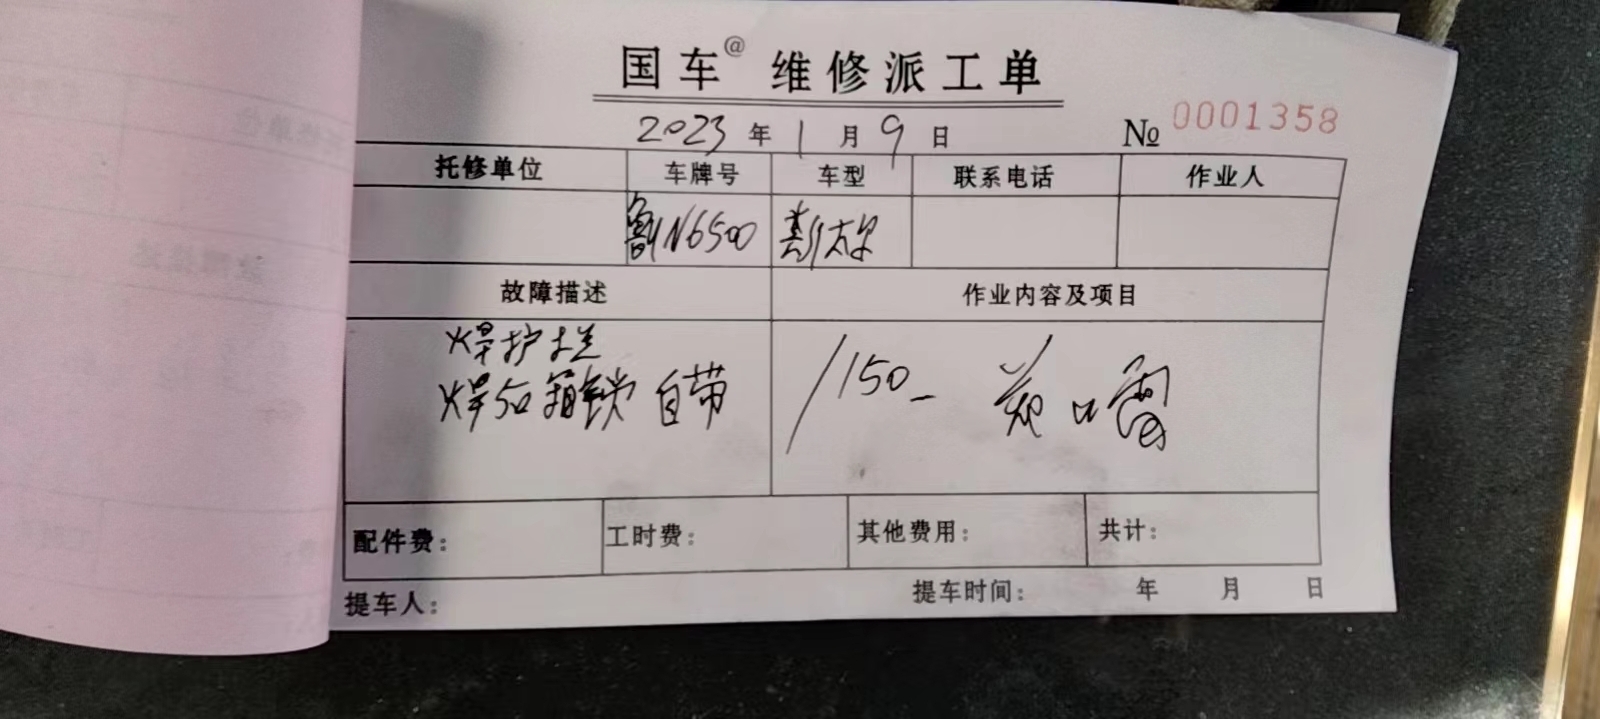 国车@ 维修派工单
2023年1月9日 № 0001358
托修单位 车牌号 车型 联系电话 作业人
N6500
故障描述 作业内容及项目
焊护栏
焊后箱锁 自带 /150-
配件费： 工时费： 其他费用： 共计：
提车人： 提车时间： 年 月 日